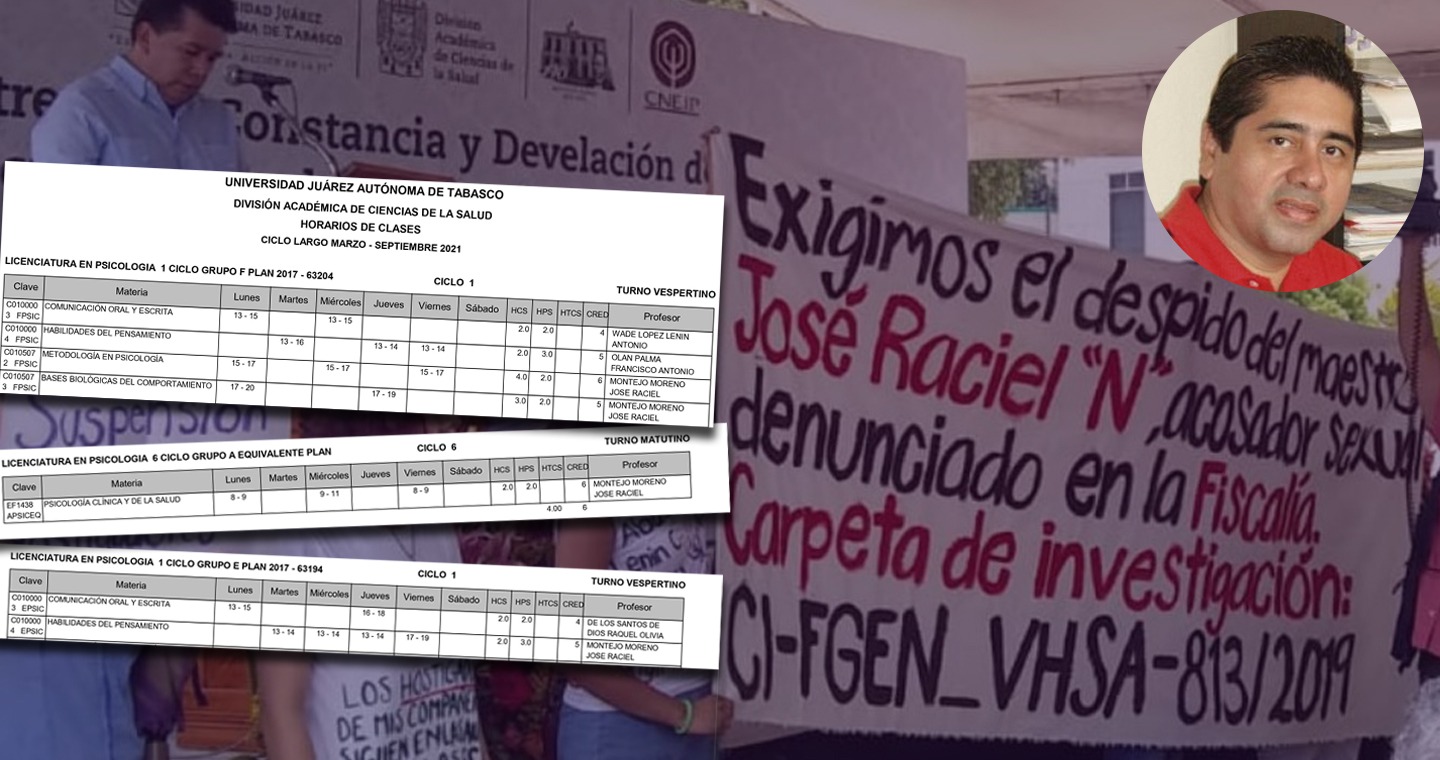 SIDAD JUÁREZ
MA DE TABASCO
División
Académica
de Ciencias de
la Salud
CNEIP
Constancia y Develación d
UNIVERSIDAD JUÁREZ AUTÓNOMA DE TABASCO
DIVISIÓN ACADÉMICA DE CIENCIAS DE LA SALUD
HORARIOS DE CLASES
CICLO LARGO MARZO - SEPTIEMBRE 2021
LICENCIATURA EN PSICOLOGIA 1 CICLO GRUPO F PLAN 2017 - 63204 CICLO 1 TURNO VESPERTINO
Clave Materia Lunes Martes Miércoles Jueves Viernes Sábado HCS HPS HTCS CRED Profesor
C010000 COMUNICACIÓN ORAL Y ESCRITA 13 - 15 13 - 15 2.0 2.0 4 WADE LOPEZ LENIN
3 FPSIC ANTONIO
C010000 HABILIDADES DEL PENSAMIENTO 13 - 16 13 - 14 13 - 14 2.0 3.0 5 OLAN PALMA
4 FPSIC FRANCISCO ANTONIO
C010507 METODOLOGÍA EN PSICOLOGÍA 15 - 17 15 - 17 15 - 17 4.0 2.0 6 MONTEJO MORENO
2 FPSIC JOSE RACIEL
C010507 BASES BIOLÓGICAS DEL COMPORTAMIENTO 17 - 20 17 - 19 3.0 2.0 5 MONTEJO MORENO
3 FPSIC JOSE RACIEL
Suspensión
LICENCIATURA EN PSICOLOGIA 6 CICLO GRUPO A EQUIVALENTE PLAN CICLO 6 TURNO MATUTINO
Clave Materia Lunes Martes Miércoles Jueves Viernes Sábado HCS HPS HTCS CRED Profesor
EF1438 PSICOLOGÍA CLÍNICA Y DE LA SALUD 8 - 9 9 - 11 8 - 9 2.0 2.0 6 MONTEJO MORENO
APSICEQ JOSE RACIEL
4.00 6
LICENCIATURA EN PSICOLOGIA 1 CICLO GRUPO E PLAN 2017 - 63194 CICLO 1 TURNO VESPERTINO
Clave Materia Lunes Martes Miércoles Jueves Viernes Sábado HCS HPS HTCS CRED Profesor
C010000 COMUNICACIÓN ORAL Y ESCRITA 13 - 15 16 - 18 2.0 2.0 4 DE LOS SANTOS DE
3 EPSIC DIOS RAQUEL OLIVIA
C010000 HABILIDADES DEL PENSAMIENTO 13 - 14 13 - 14 13 - 14 17 - 19 2.0 3.0 5 MONTEJO MORENO
4 EPSIC JOSE RACIEL
LOS HOSTIGA
DE MIS COMPAÑE
SIGUEN EN LAS AU
Exigimos el despido del maestro
José Raciel "N", acosador sexual
denunciado en la Fiscalía.
Carpeta de investigación:
CI-FGEN_VHSA-813/2019